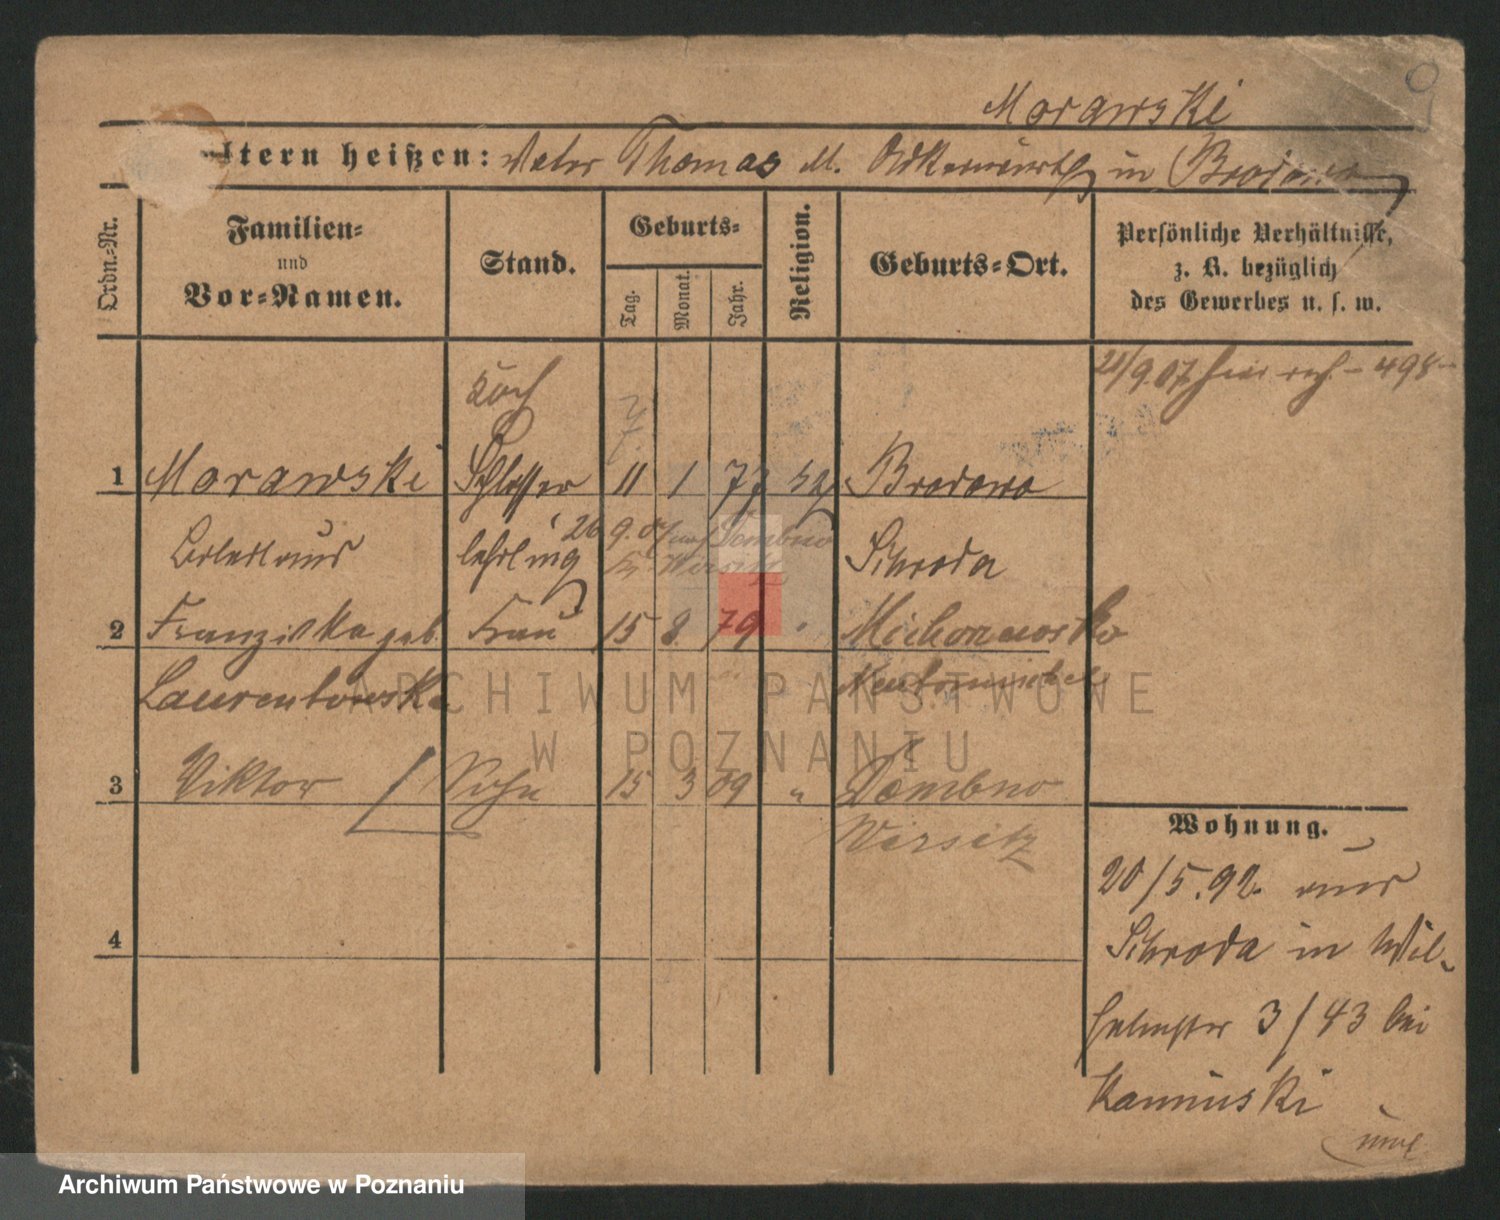 Morawski
ltern heißen: Vater Thomas M. in Brodowo
Ordn.-Nr.
Familien-
und
Vor-Namen.
Stand.
Geburts-
Tag.
Monat.
Jahr.
Religion.
Geburts-Ort.
Persönliche Verhältnisse,
z. B. bezüglich
des Gewerbes u. s. w.
21/9.07. hier - 498
Koch
1 Morawski Schlosser 11 1 77 Brodowo
lehrling Schroda
26 9. 07 nach Dembno
Kr. Wirsitz
2 Franziska geb. Frau 15 8. 79 "
Laurentowska
3 Viktor Sohn 15 3 09 " Dembno
Wirsitz
4
Wohnung.
20/5.92. aus
Schroda in Wil-
helmstr 3/43 bei
Kaminski
ARCHIWUM PAŃSTWOWE
W POZNANIU
Archiwum Państwowe w Poznaniu